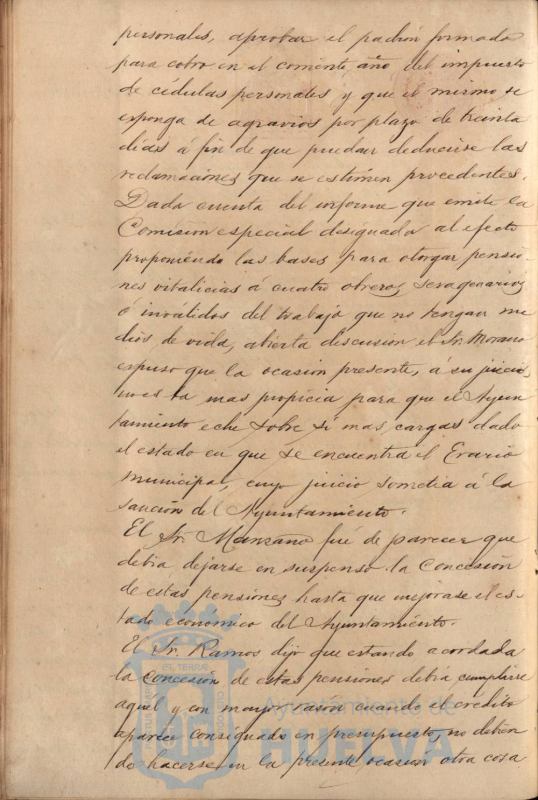 personales, aprobar el padrón formado
para cobro en el corriente año del impuesto
de cédulas personales y que el mismo se
esponga de agravios por plazo de treinta
dias á fin de que puedan deducirse las
reclamaciones que se estimen procedentes.
Dada cuenta del informe que emite la
Comisión especial designada al efecto
proponiendo las bases para otorgar pensio
nes vitalicias á cuatro obreros sexagenarios
ó inválidos del trabajo que no tengan me
dios de vida, abierta discusion el Sr. Morano
espuso que la ocasion presente, á su juicio,
no es la mas propicia para que el Ayun
tamiento eche sobre si mas cargas dado
el estado en que se encuentra el Erario
Municipal, cuyo juicio sometia á la
sanción del Ayuntamiento.
El Sr. Manzano fue de parecer que
debia dejarse en suspenso la concesión
de estas pensiones hasta que mejorase el es-
tado económico del Ayuntamiento.
El Sr. Ramos dijo que estando acordada
la concesión de estas pensiones debia cumplirse
aquél y con mayor razón cuando el crédito
aparece consignado en presupuesto, no debien
do hacerse en la presente ocasión otra cosa
Ayuntamiento de
HUELVA